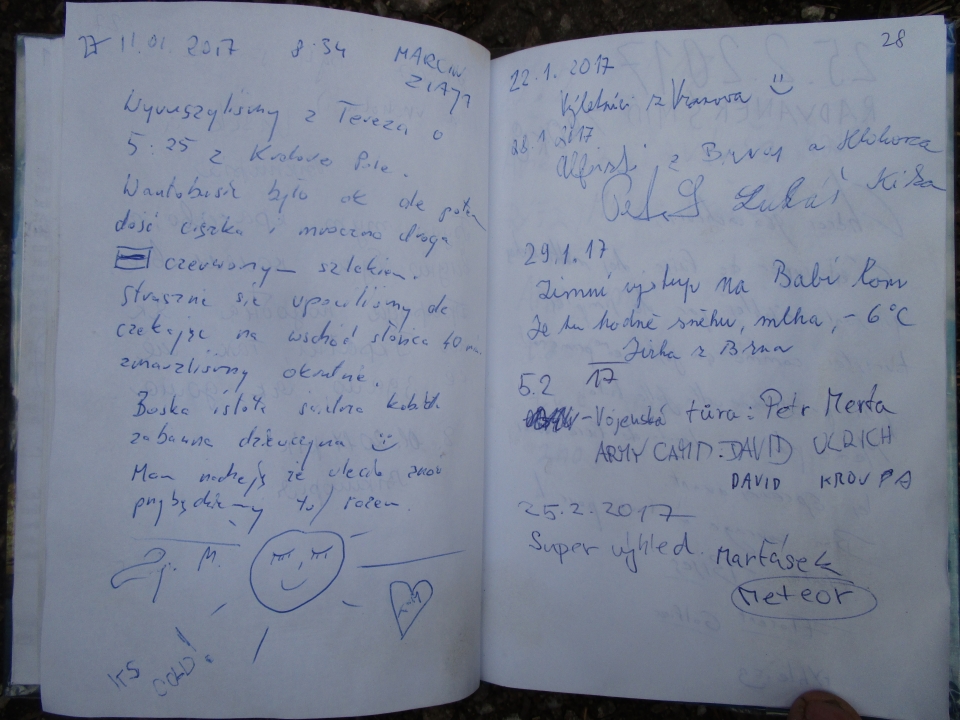 27 11.01.2017 8:34 MARCIN
Wyruszyliśmy z Tereza o
5:25 z Kralovo Pole.
W autobusie było ok ale potem
dość ciężka i mroczna droga
czerwonym szlakiem.
Strasznie się upociliśmy ale
czekając na wschód słońca 40 min.
zmarzliśmy okrutnie.
Boska istota
zabawna dziewczyna
Mam nadzieję że latem znów
przybędziemy tu razem.
M.
IT'S
COLD!
28
22.1.2017
Výletníci z Vranova
28.1.2017
z Brna a
Lukáš
29.1.17
Zimní výstup na Babí lom
Je tu hodně sněhu, mlha, -6°C
Jirka z Brna
5.2 17
-Vojenská túra: Petr Merta
ARMY CAMP: DAVID ULRICH
DAVID KROUPA
25.2.2017
Super výhled. Marťásek
Meteor